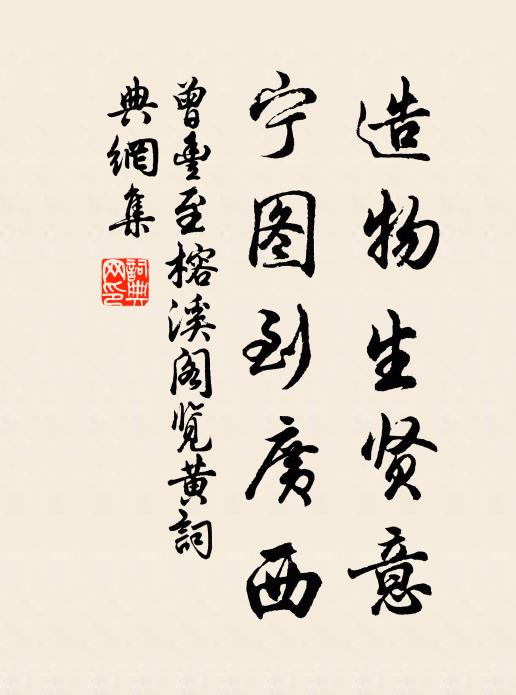 造物生贤意
宁图到廣西
曾豊至榕溪阁览黄詞
典網集
詞典
网印